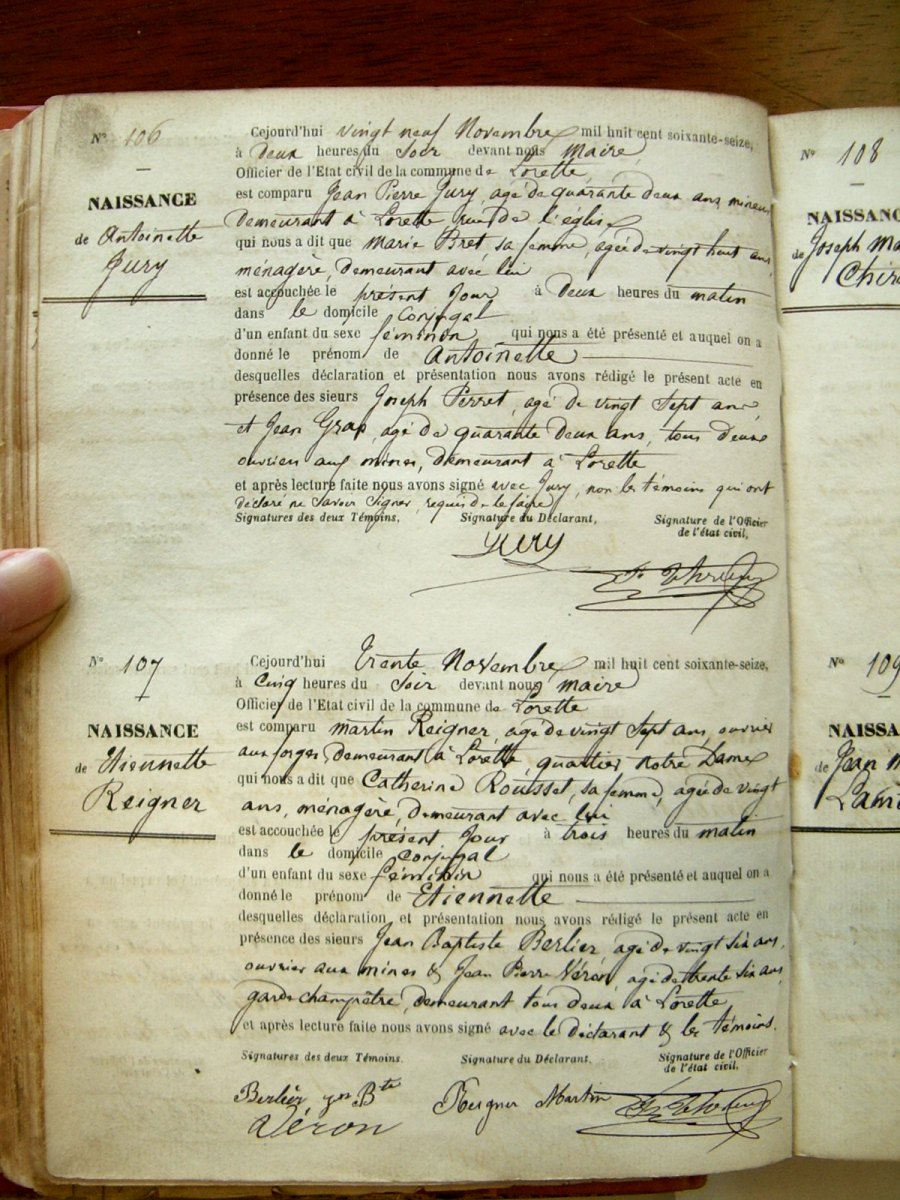 N° 106
NAISSANCE
de Antoinette
Jury
Cejourd'hui vingt neuf Novembre mil huit cent soixante-seize,
à deux heures du Soir devant nous Maire
Officier de l'Etat civil de la commune de Lorette,
est comparu Jean Pierre Jury, agé de quarante deux ans mineur
demeurant à Lorette rue de l'église
qui nous a dit que Marie Bret sa femme, agée de vingt huit ans,
ménagère, demeurant avec lui
est accouchée le présent Jour à Deux heures du matin
dans le domicile conjugal
d'un enfant du sexe féminin qui nous a été présenté et auquel on a
donné le prénom de Antoinette
desquelles déclaration et présentation nous avons rédigé le présent acte en
présence des sieurs Joseph Perret, agé de vingt Sept ans
et Jean Grap, agé de quarante deux ans, tous deux
ouvriers aux mines, demeurant à Lorette
et après lecture faite nous avons signé avec Jury, non les témoins qui ont
déclaré ne Savoir Signer, requis de le faire
Signatures des deux Témoins, Signature du Déclarant, Signature de l'Officier
de l'état civil,
Jury
N° 107
NAISSANCE
de Etiennette
Reigner
Cejourd'hui Trente Novembre mil huit cent soixante-seize,
à Cinq heures du Soir devant nous maire
Officier de l'Etat civil de la commune de Lorette
est comparu Martin Reigner, agé de vingt Sept ans, ouvrier
aux forges demeurant à Lorette, quartier Notre Dame
qui nous a dit que Catherine Rousset, sa femme, agée de vingt
ans, ménagère, demeurant avec lui
est accouchée le présent Jour à trois heures du matin
dans le domicile conjugal
d'un enfant du sexe féminin qui nous a été présenté et auquel on a
donné le prénom de Etiennette
desquelles déclaration et présentation nous avons rédigé le présent acte en
présence des sieurs Jean Baptiste Berlier agé de vingt six ans,
ouvrier aux mines & Jean Pierre Véron, agé de trente six ans,
garde champêtre, demeurant tous deux à Lorette
et après lecture faite nous avons signé avec le déclarant & les témoins.
Signatures des deux Témoins. Signature du Déclarant. Signature de l'Officier
de l'état civil,
Berlier Bte Reigner Martin
Véron
N° 108
NAISSANC
de Joseph Ma
Chir
N° 109
NAISSA
de Jean M